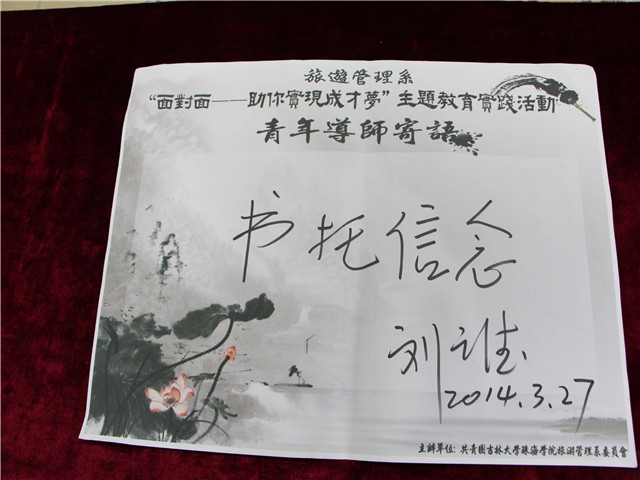 旅遊管理系
“面對面——助你實現成才夢”主題教育實踐活動
青年導師寄語
书托信念
刘
2014.3.27
主辦單位: 共青團吉林大學珠海學院旅游管理系委員會